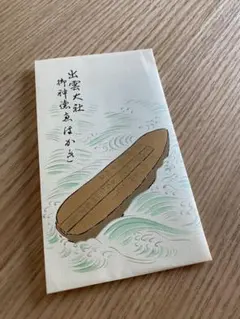 出雲大社
御神徳えはがき